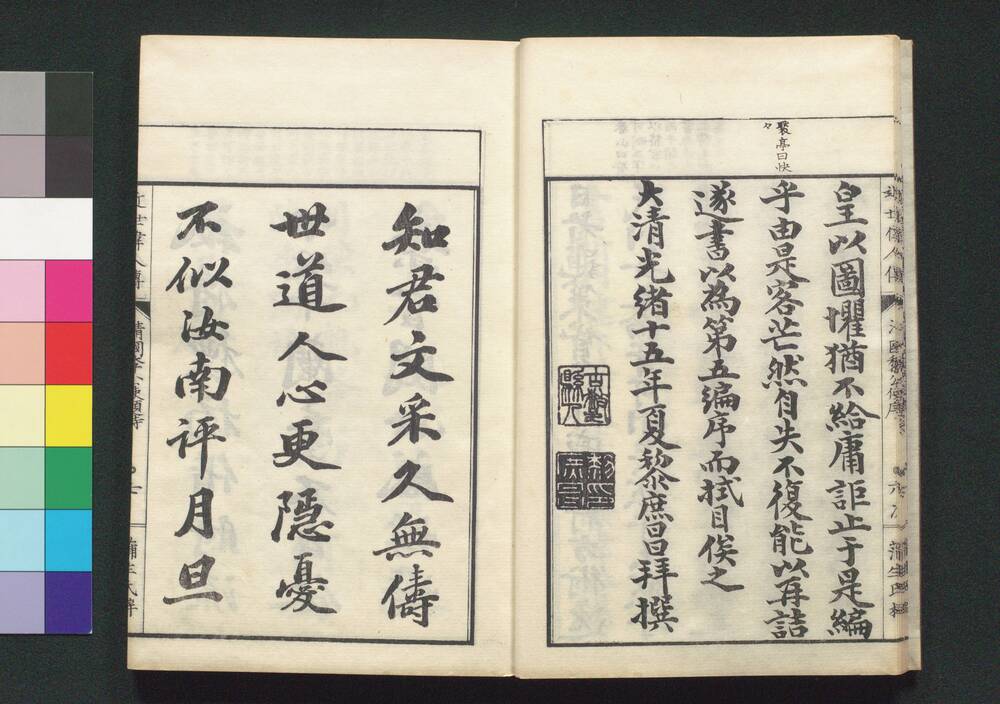 聚亭曰快
々
皇以圖懼猶不給庸詎止于是編
乎由是客芒然自失不復能以再詰
遂書以為第五編序而拭目俟之
大清光緒十五年夏黎庶昌拜撰
知君文采久無儔
世道人心更隱憂
不似汝南評月旦